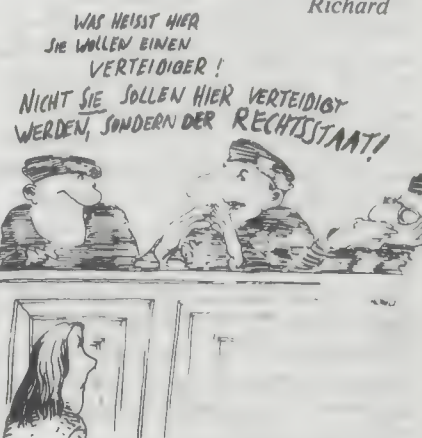 Richard
WAS HEISST HIER
SIE WOLLEN EINEN
VERTEIDIGER!
NICHT SIE SOLLEN HIER VERTEIDIGT
WERDEN, SONDERN DER RECHTSSTAAT!